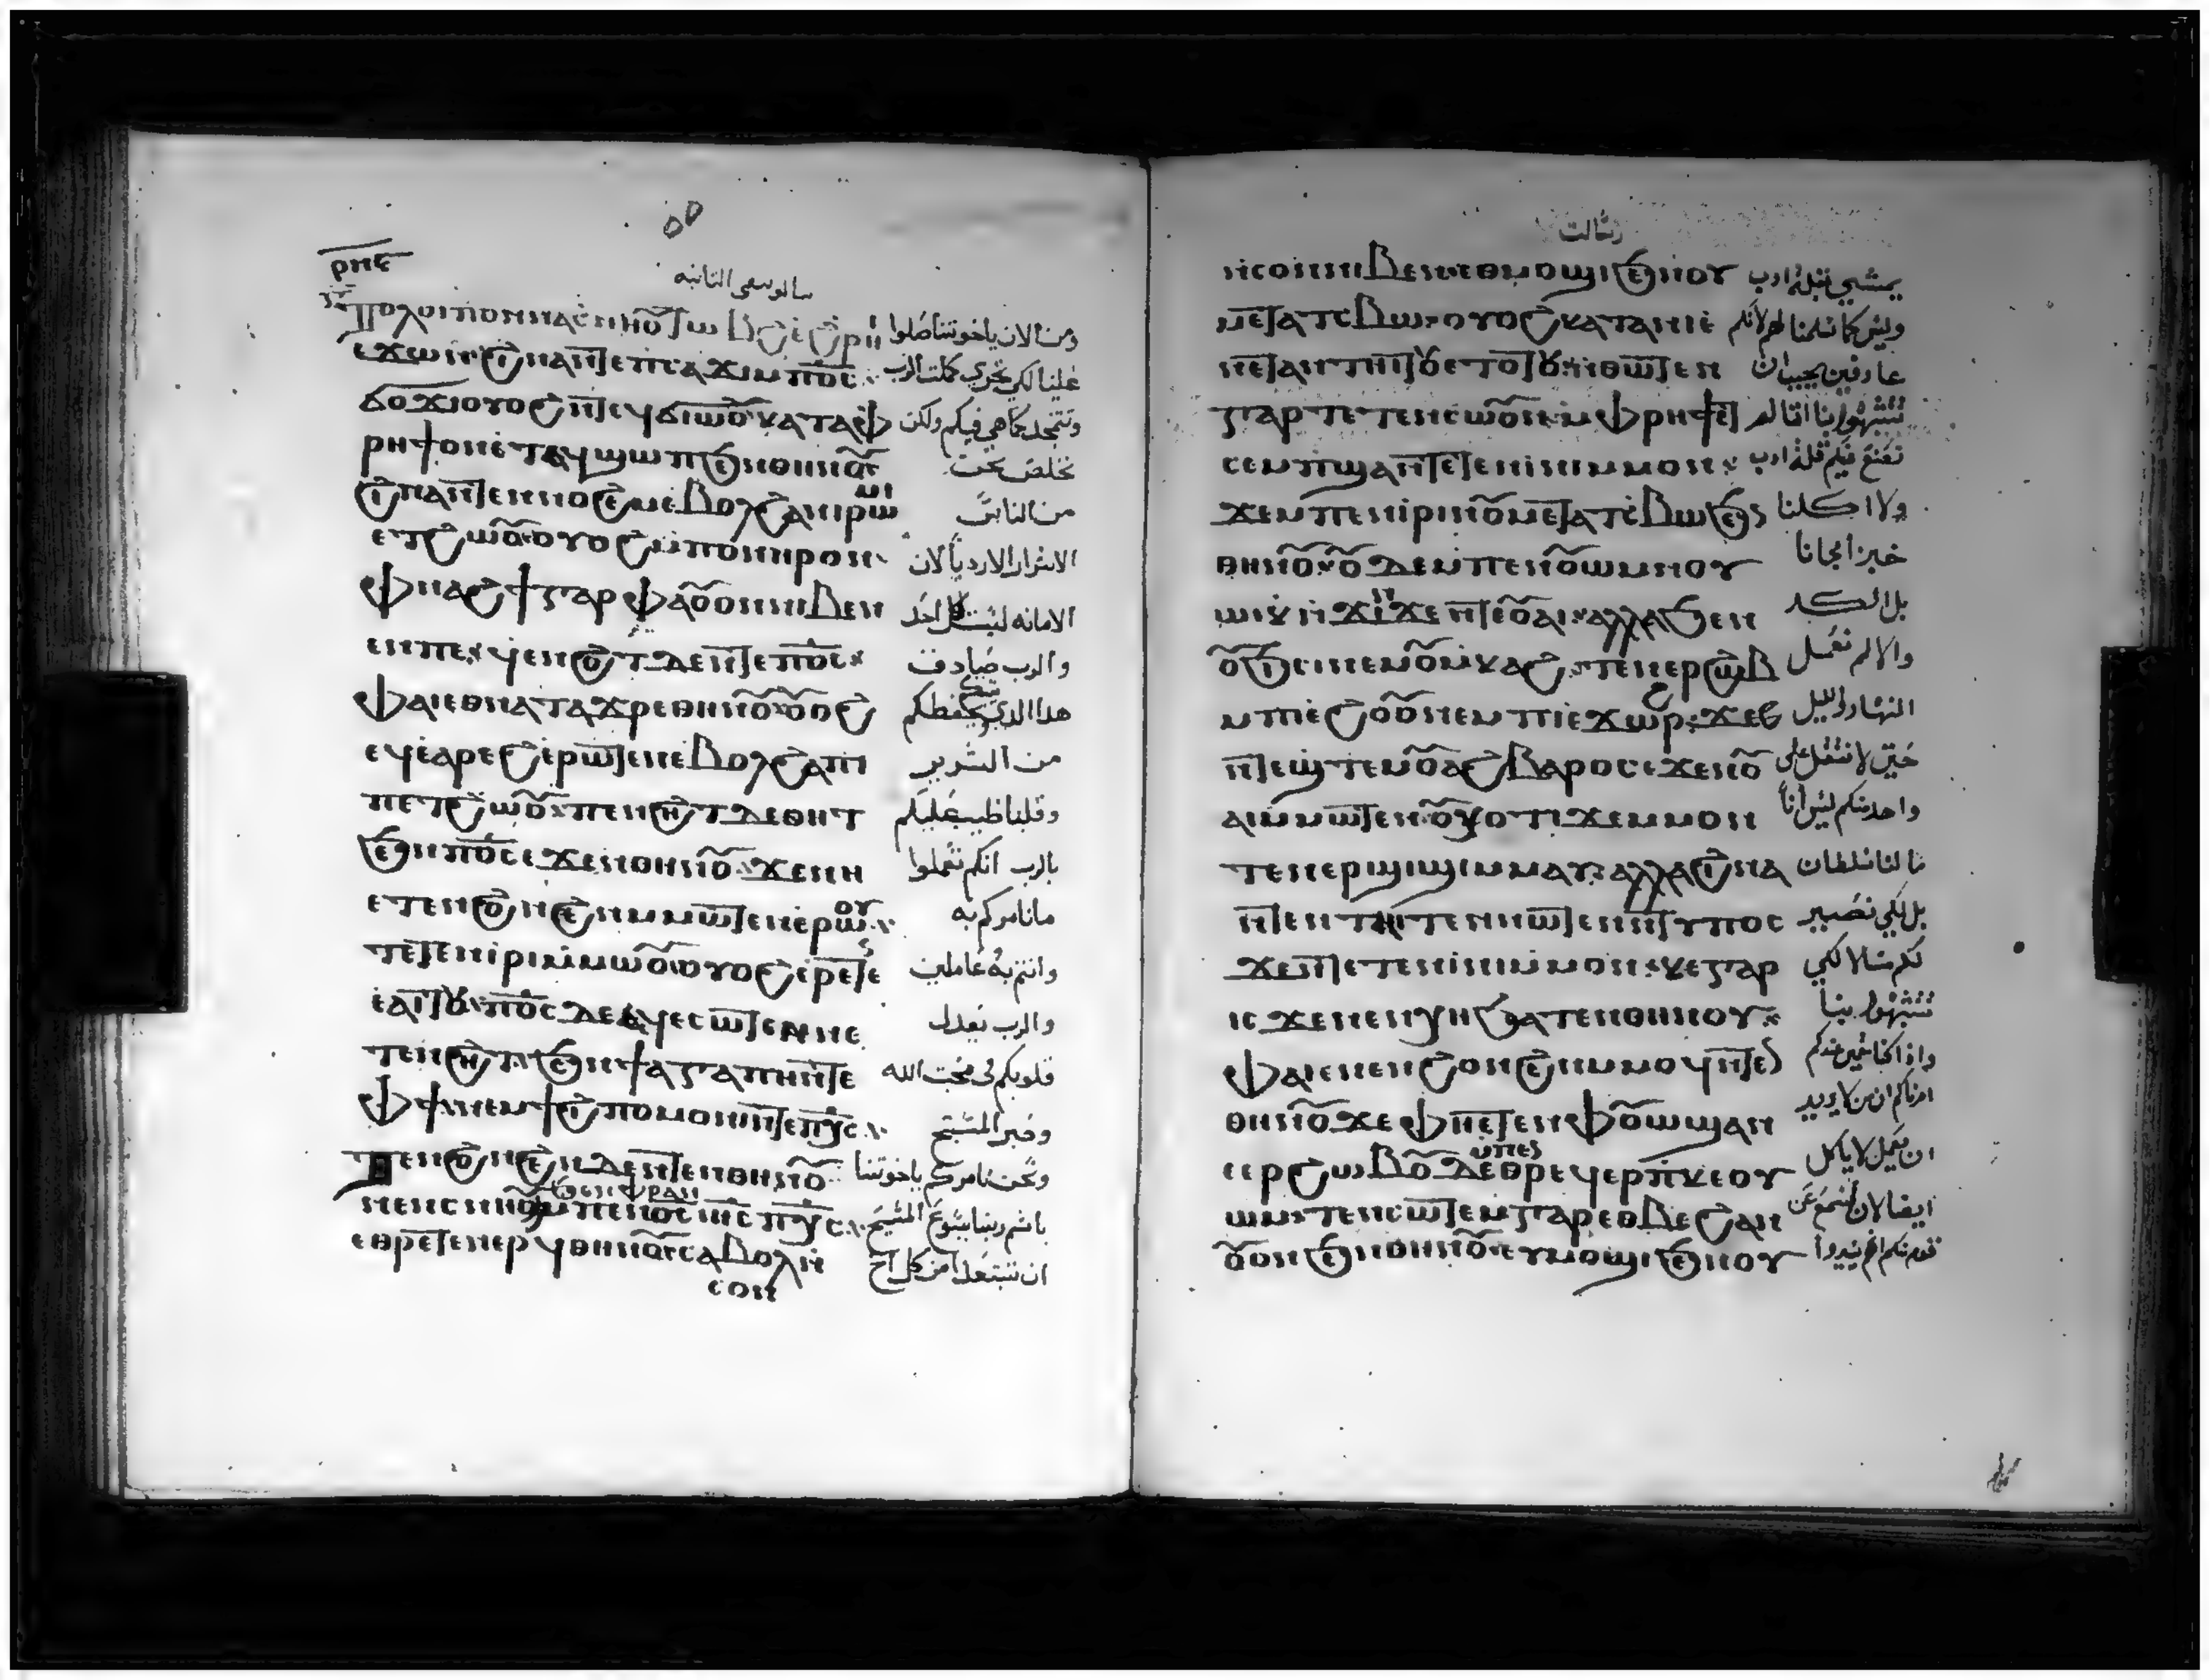 ⲣⲛⲉ
ⲡⲟⲗⲟⲓⲡⲟⲛ ⲛⲁⲥⲛⲏⲟⲩ ⲧⲱⲃϩ ⲉϩⲣⲏⲓ ومن الان ياخوتنا صلوا
ⲉϫⲱⲛ ϩⲓⲛⲁ ⲛⲧⲉ ⲡⲥⲁϫⲓ ⲙⲡⲟⲥ علينا لكي تجري كلمت الرب
ϭⲟϫⲓ ⲟⲩⲟϩ ⲛⲧⲉϥϭⲓⲱⲟⲩ ⲕⲁⲧⲁ ⲫ وتتمجد كما هي فيكم ولكن
ⲣⲏϯ ⲟⲛ ⲉⲧⲁϥϣⲱⲡⲓ ϧⲉⲛ ⲑⲏⲛⲟⲩ نخلص نحن
ϩⲓⲛⲁ ⲛⲧⲉⲛⲛⲟϩⲉⲙ ⲉⲃⲟⲗϩⲁ ⲛⲓⲣⲱⲙⲓ من الناس
ⲉⲧϩⲱⲟⲩ ⲟⲩⲟϩ ⲙⲡⲟⲛⲏⲣⲟⲛ الاشرار الارديا لان
ⲫⲛⲁϩϯ ⲅⲁⲣ ⲫⲁ ⲟⲩⲟⲛ ⲛⲓⲃⲉⲛ الامانه ليست لكل احد
ⲉⲛ ⲡⲉ ϥⲉⲛϩⲟⲧ ⲇⲉ ⲛϫⲉ ⲡⲟⲥ والرب صادق
ⲫⲁⲓ ⲉⲑⲛⲁⲧⲁϫⲣⲉ ⲑⲏⲛⲟⲩ ⲟⲩⲟϩ هدا الدي يحفظكم
ⲉϥⲉⲁⲣⲉϩ ⲉⲣⲱⲧⲉⲛ ⲉⲃⲟⲗϩⲁ ⲡⲓ من الشرير
ⲡⲉⲧϩⲱⲟⲩ ⲡⲉⲛϩⲏⲧ ⲇⲉ ⲑⲏⲧ وقلبنا طيب عليكم
ϧⲉⲛ ⲡⲟⲥ ⲉϫⲉⲛ ⲑⲏⲛⲟⲩ ϫⲉ ⲛⲏ بالرب انكم تعملوا
ⲉⲧⲉⲛϩⲟⲛϩⲉⲛ ⲙⲙⲱⲧⲉⲛ ⲉⲣⲱⲟⲩ مانامركم به
ⲧⲉⲧⲉⲛⲓⲣⲓ ⲙⲙⲱⲟⲩ ⲟⲩⲟϩ ⲉⲣⲉⲧⲉ وانتم به عاملين
ⲉⲁⲓⲧⲟⲩ ⲡⲟⲥ ⲇⲉ ⲉϥⲉⲥⲱⲧⲉⲛ ⲛⲉ والرب يعدل
ⲧⲉⲛϩⲏⲧ ϧⲉⲛ ϯⲁⲅⲁⲡⲏ ⲛⲧⲉ قلوبكم في محبت الله
ⲫϯ ⲛⲉⲙ ϯϩⲩⲡⲟⲙⲟⲛⲏ ⲛⲧⲉ ⲡⲭⲥ وصبر المسيح
ⲧⲉⲛϩⲟⲛϩⲉⲛ ⲇⲉ ⲛⲧⲉⲛ ⲑⲏⲛⲟⲩ ونحن نامركم ياخوتنا
ⲛⲉⲛⲥⲛⲏⲟⲩ ϧⲉⲛ ⲫⲣⲁⲛ ⲙⲡⲉⲛⲟⲥ ⲓⲏⲥ ⲡⲭⲥ باسم ربنا يسوع المسيح
ⲉⲑⲣⲉⲧⲉⲛⲉⲣ ϥ ⲑⲏⲛⲟⲩ ⲥⲁⲃⲟⲗ ⲛ ان تتبعدا من كل اخ
ⲥⲟⲛ
رسالت
ⲛⲥⲟⲛ ⲛⲓⲃⲉⲛ ⲉⲑⲙⲟϣⲓ ϧⲉⲛ ⲟⲩ يمشي بقلة ادب
ⲙⲉⲧⲁⲧⲥⲃⲱ ⲟⲩⲟϩ ⲕⲁⲧⲁ ⲛⲓⲉ وليس كما سلمنا لهم لانكم
ⲛⲉⲧⲁⲛⲧⲏⲓⲧⲟⲩ ⲉⲧⲟⲧⲟⲩ ⲛⲑⲱⲧⲉⲛ عارفين يجب ان
ⲅⲁⲣ ⲧⲉⲧⲉⲛⲥⲱⲟⲩⲛ ⲙⲫⲣⲏϯ ⲉⲧ تتشبهوا بنا
ⲥⲉⲙⲡϣⲁ ⲛⲧⲉⲧⲉⲛⲓⲛⲓ ⲙⲙⲟⲛ نصنع فيكم قلة ادب
ϫⲉ ⲙⲡⲉⲛⲓⲣⲓ ⲛⲟⲩⲙⲉⲧⲁⲧⲥⲃⲱ ϧⲉⲛ ولا اكلنا
ⲑⲏⲛⲟⲩ ⲟⲩⲇⲉ ⲙⲡⲉⲛⲟⲩⲱⲙ ⲛⲟⲩ خبزا مجانا
ⲱⲓⲕ ⲛϫⲓⲛϫⲏ ⲛⲧⲉ ⲟⲩⲁⲓ ⲁⲗⲗⲁ ϧⲉⲛ بل الكد
ⲟⲩϧⲓⲥⲓ ⲛⲉⲙ ⲟⲩⲙⲕⲁϩ ⲧⲉⲛⲉⲣϩⲱⲃ والالم نعمل
ⲙⲡⲓⲉϩⲟⲟⲩ ⲛⲉⲙ ⲡⲓⲉϫⲱⲣϩ ϫⲉ النهار والليل
ⲛⲧⲉϣⲧⲉⲙⲟⲩⲁϩⲃⲁⲣⲟⲥ ⲉϫⲉⲛ ⲟⲩ حتى لا نثقل على
ⲁⲓ ⲙⲙⲱⲧⲉⲛ ⲟⲩⲭ ⲟⲧⲓ ϫⲉ ⲙⲙⲟⲛ واحد منكم ليس انا
ⲧⲉⲛⲉⲣϣⲓϣⲓ ⲙⲙⲁⲩ ⲁⲗⲗⲁ ϩⲓⲛⲁ ما لنا سلطان
ⲛⲧⲉⲛⲧⲏⲓⲧⲉⲛ ⲛⲱⲧⲉⲛ ⲛⲧⲩⲡⲟⲥ بل لكي نصير
ϫⲉ ⲛⲧⲉⲧⲉⲛⲓⲛⲓ ⲙⲙⲟⲛ ⲕⲉ ⲅⲁⲣ لكم مثالا لكي
ⲓⲥϫⲉⲛ ⲉⲛⲭⲏ ϧⲁⲧⲉⲛ ⲑⲏⲛⲟⲩ تتشبهوا بنا
ⲫⲁⲓ ⲉⲛⲉⲛϩⲟⲛϩⲉⲛ ⲙⲙⲟϥ ⲛⲧⲉ واذا كنا مقيمين عندكم
ⲑⲏⲛⲟⲩ ϫⲉ ⲫⲏ ⲉⲧⲉ ⲛϥⲟⲩⲱϣ ⲁⲛ امرناكم ان من لا يريد
ⲉⲉⲣϩⲱⲃ ⲟⲩⲇⲉ ⲙⲡⲉⲛ ⲑⲣⲉϥⲉⲣ ⲡⲕⲉⲟⲩ ان يعمل لا ياكل
ⲱⲙ ⲧⲉⲛⲥⲱⲧⲉⲙ ⲅⲁⲣ ⲉⲑⲃⲉ ϩⲁⲛ ايضا لان نسمع عن
ⲟⲩⲟⲛ ϧⲉⲛ ⲑⲏⲛⲟⲩ ⲉⲩⲙⲟϣⲓ ϧⲉⲛ ⲟⲩ